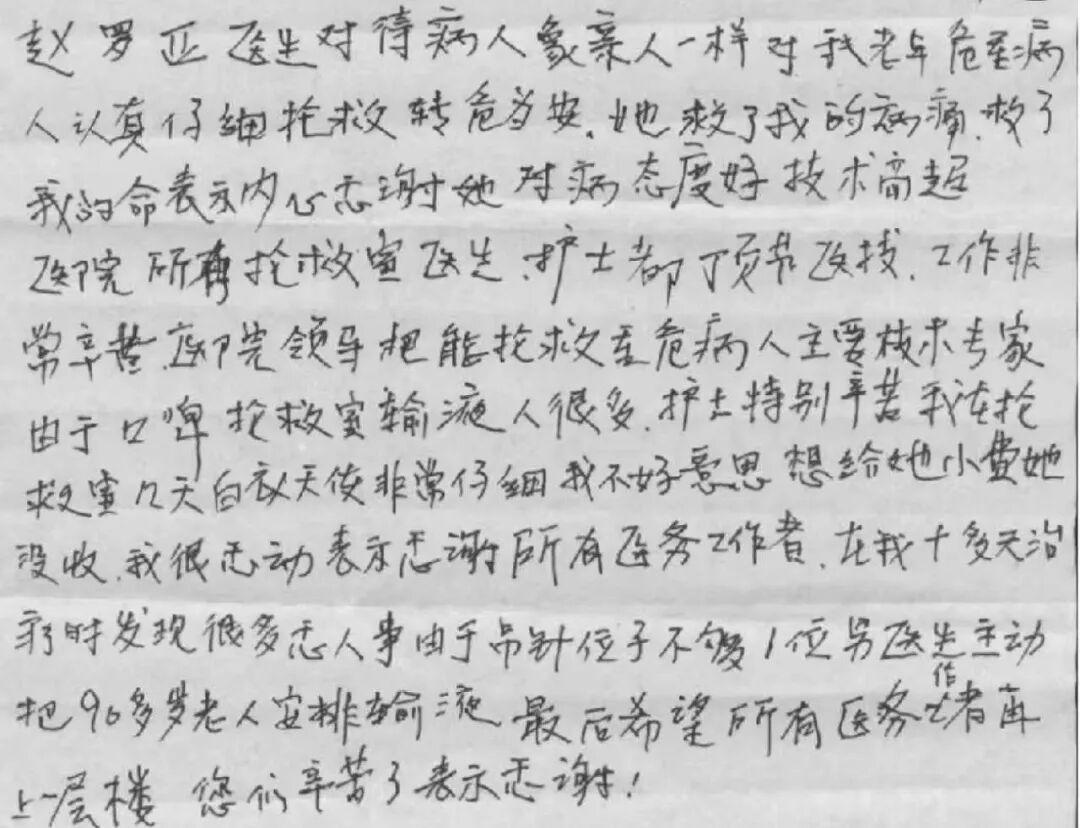 赵罗亚医生对待病人象亲人一样对我老年危重病
人认真仔细抢救转危为安.她救了我的病痛.救了
我的命表示内心忎谢她对病态度好技术高超
医院所有抢救室医生.护士都顶节医技.工作非
常辛苦.医院领导把能抢救重危病人主要技术专家
由于口啤抢救室输液人很多.护士特别辛苦我在抢
救室几天白衣天使非常仔细我不好意思想给她小费她
没收.我很忎动表示忎谢所有医务工作者.在我十多天治
疗时发现很多忎人事由于吊针位子不够1位男医生主动
把90多岁老人安排输液最后希望所有医务工作者再
上一层楼您们辛苦了表示忎谢!